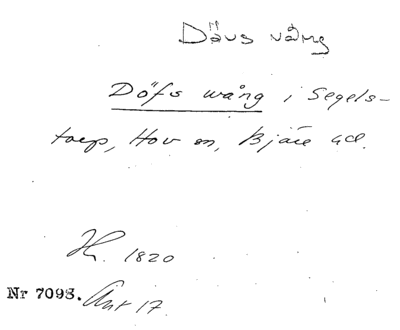 Dövs vång
Döfs wång i Segels-
torp, Hov sn, Bjäre hd.
H. 1820
Nr 7098. Akt 17.